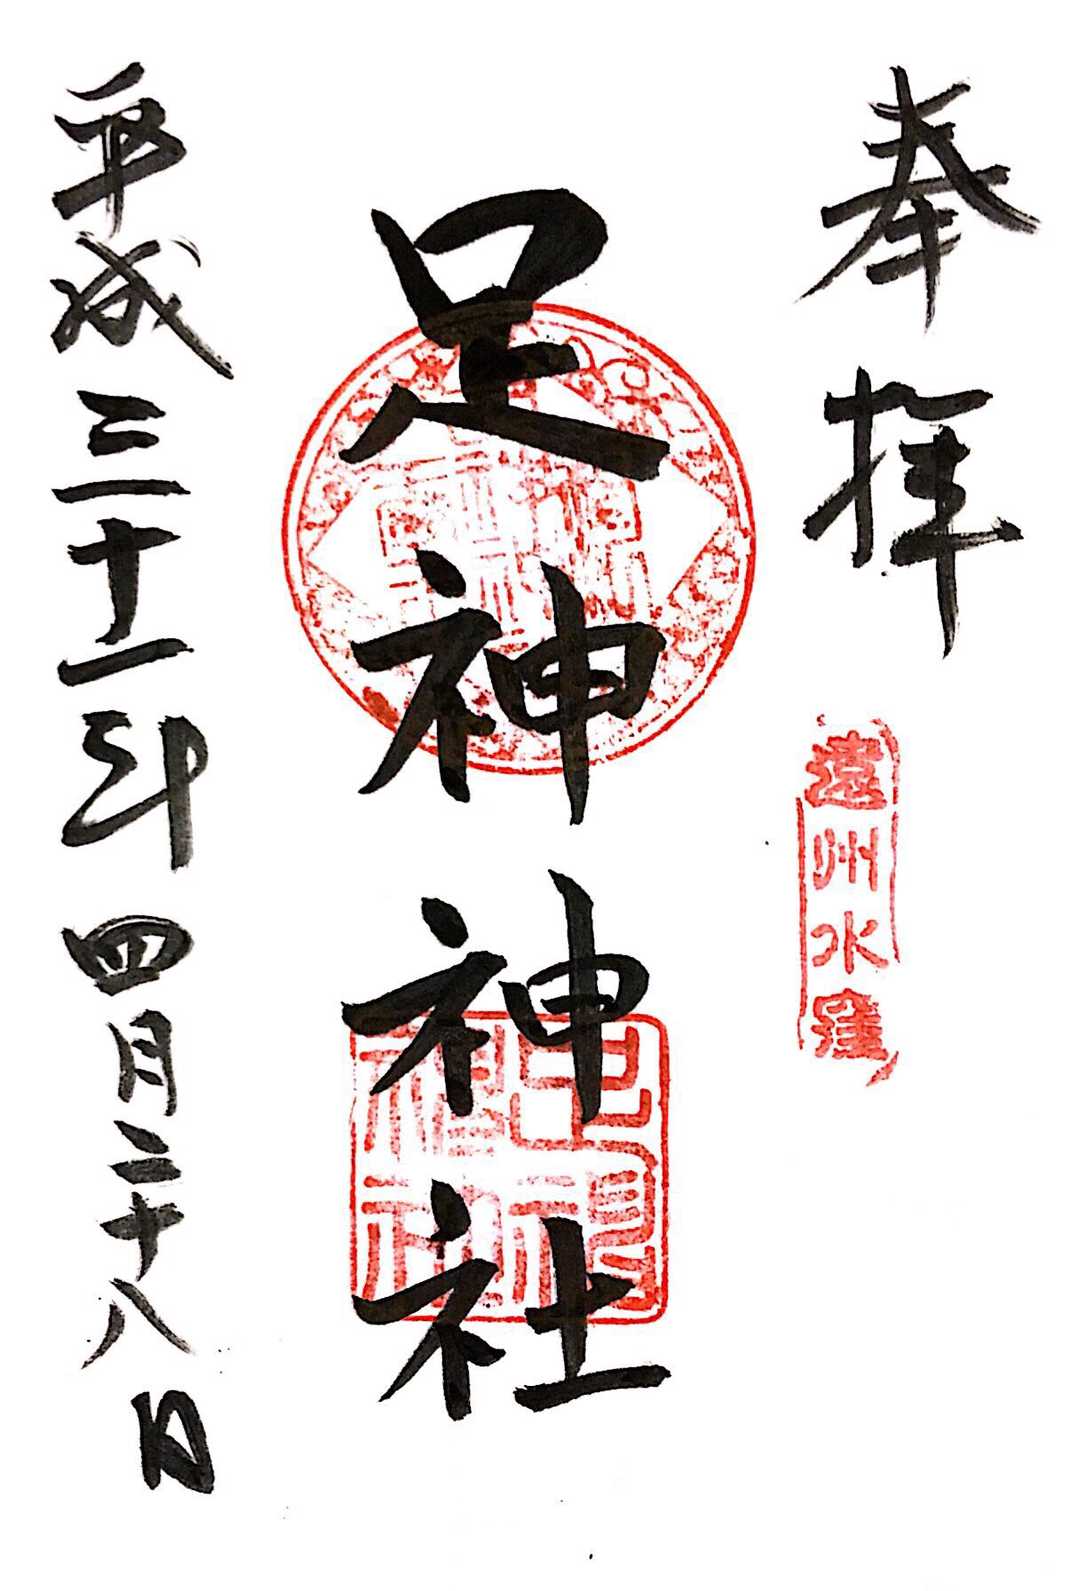 奉拝
遠州水窪
足神神社
平成三十一年四月二十八日